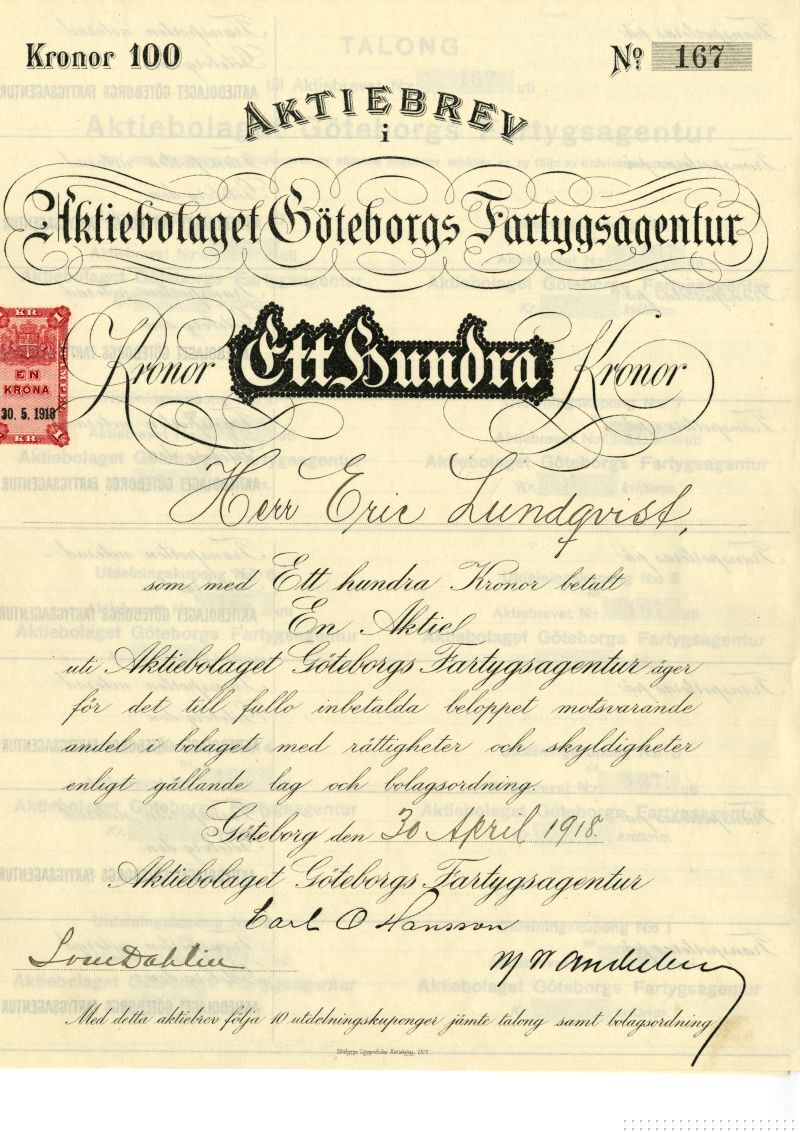 Kronor 100
No 167
AKTIEBREV
i
Aktiebolaget Göteborgs Fartygsagentur
Kronor Ett Hundra Kronor
KR.
EN
KRONA
30. 5. 1918
KR.
Herr Eric Lundqvist,
som med Ett hundra Kronor betalt
En Aktie
uti Aktiebolaget Göteborgs Fartygsagentur äger
för det till fullo inbetalda beloppet motsvarande
andel i bolaget med rättigheter och skyldigheter
enligt gällande lag och bolagsordning.
Göteborg den 30 April 1918
Aktiebolaget Göteborgs Fartygsagentur
Carl O Hansson
Dahlin
Med detta aktiebrev följa 10 utdelningskuponger jämte talong samt bolagsordning